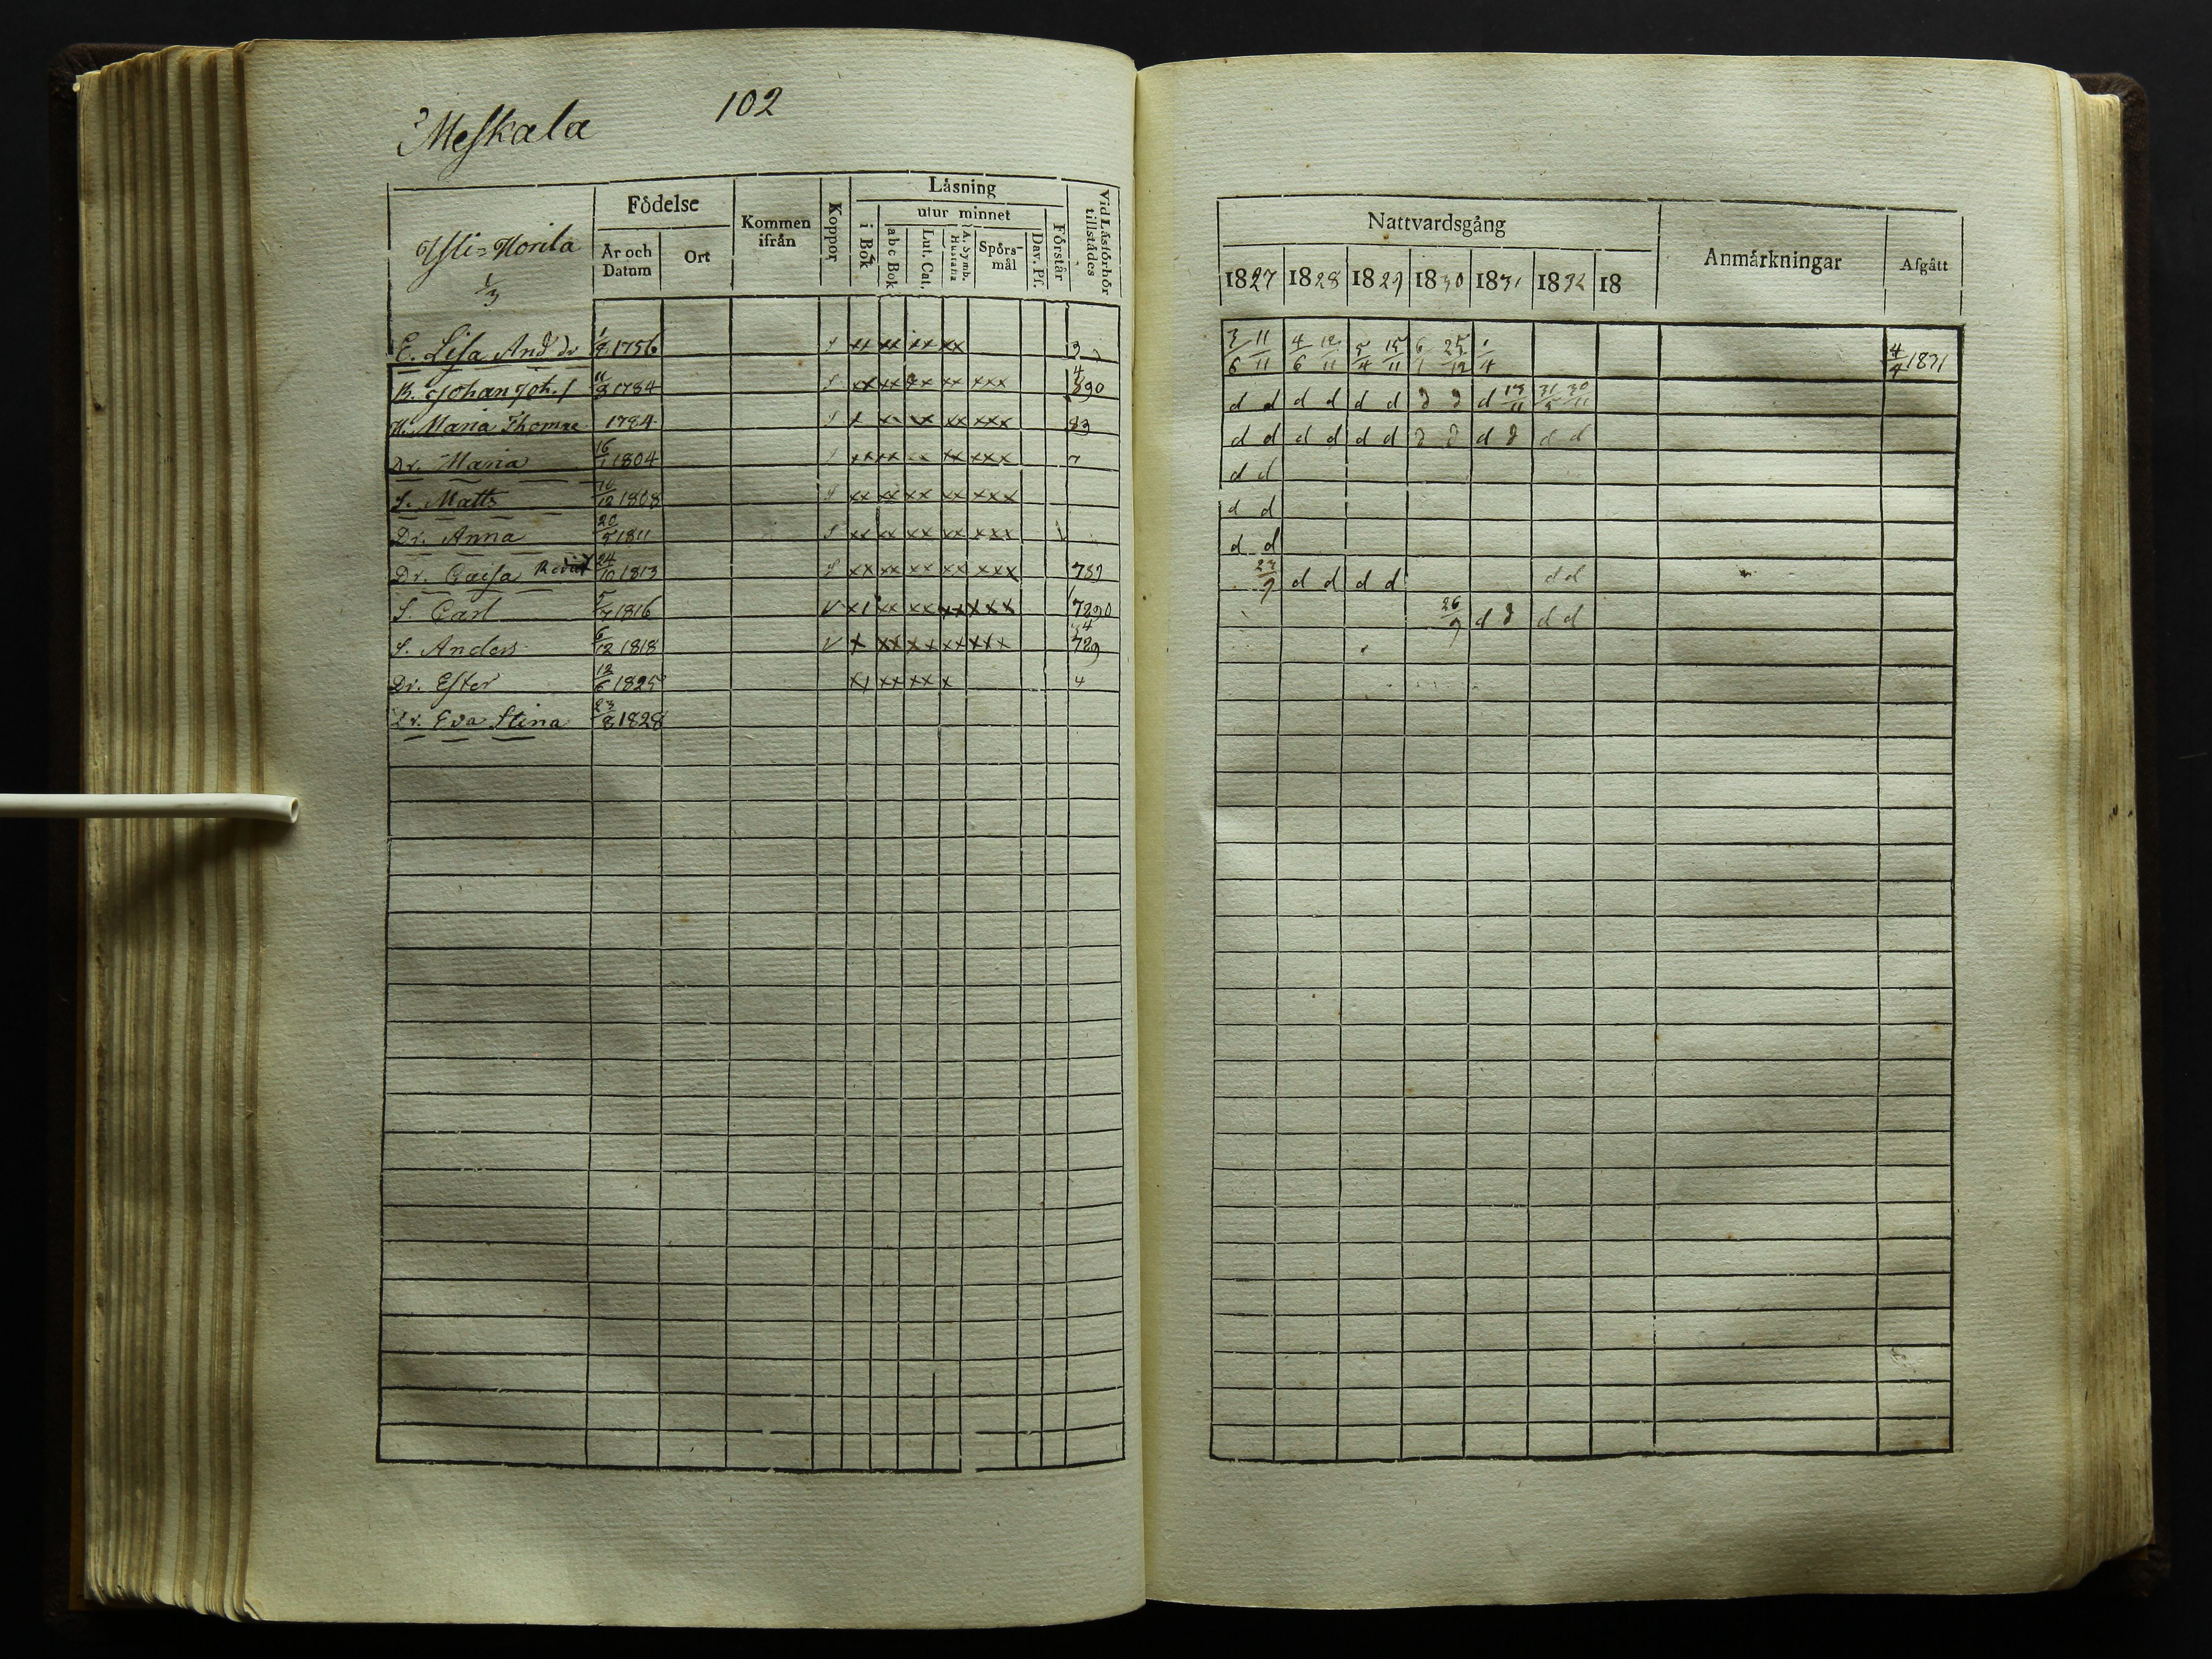 Meskala 102
Födelse
År och Datum
Ort
Kommen ifrån
Koppor
Läsning
i Bok
utur minnet
a b c Bok
Lut. Cat.
A. Symb. Hustafla
Spörsmål
Dav. Ps.
Förstår
Vid Läsförhör tillstådes
Yli-Horila
1/3
E. Lisa And. dr 1/8 1756 S xx xx xx xx
B. Johan Joh. s 11/3 1784 S xx xx xx xx xxx
H. Maria Thomae 1784 S x xx xx xx xxx 83
Dr. Maria 16/1 1804 xx xx xx xx xxx
S. Matts 10/12 1808 S xx xx xx xx xxx
Dr. Anna 20/5 1811 S xx xx xx xx xxx
Dr. Caisa 24/10 1813 S xx xx xx xx xxx 789
S. Carl 5/7 1816 V xx xx xx xxx 7890
S. Anders 6/12 1818 V x xx xx xx xxx 789
Dr. Ester 12/6 1825 xx xx x 4
Dr. Eva Stina 23/8 1828
Nattvardsgång
Anmärkningar
Afgått
1827 1828 1829 1830 1831 1832 18
3/6 11/11 4/6 12/11 5/4 15/11 6/1 25/12 1/4 4/4 1831
d d d d d d d d d 13/11 31/5 30/11
d d d d d d d d d d d d
d d
d d
d d
23/9 d d d d d d
26/9 d d d d